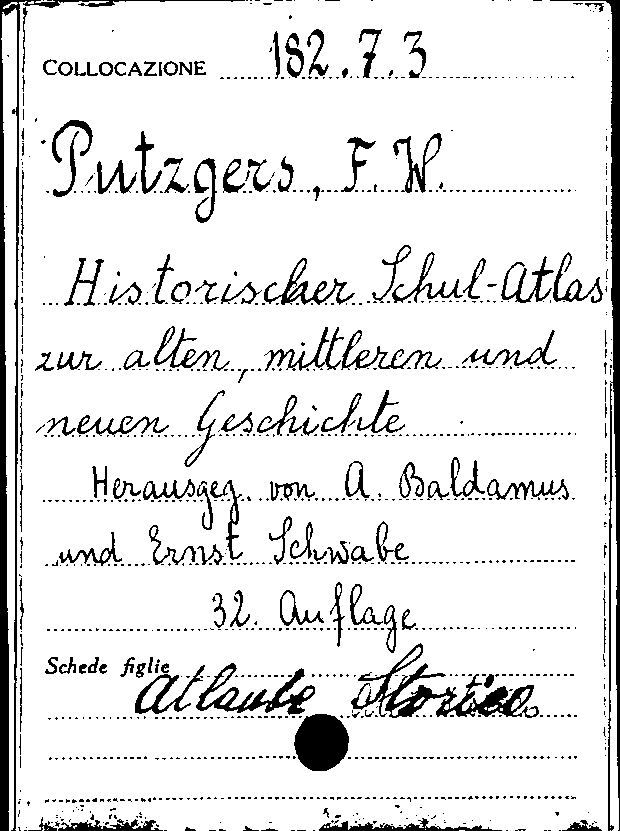 COLLOCAZIONE 182.7.3
Putzgers, F. W.
Historischer Schul-Atlas
zur alten, mittleren und
neuen Geschichte
Herausgeg. von A. Baldamus
und Ernst Schwabe
32. Auflage
Schede figlie